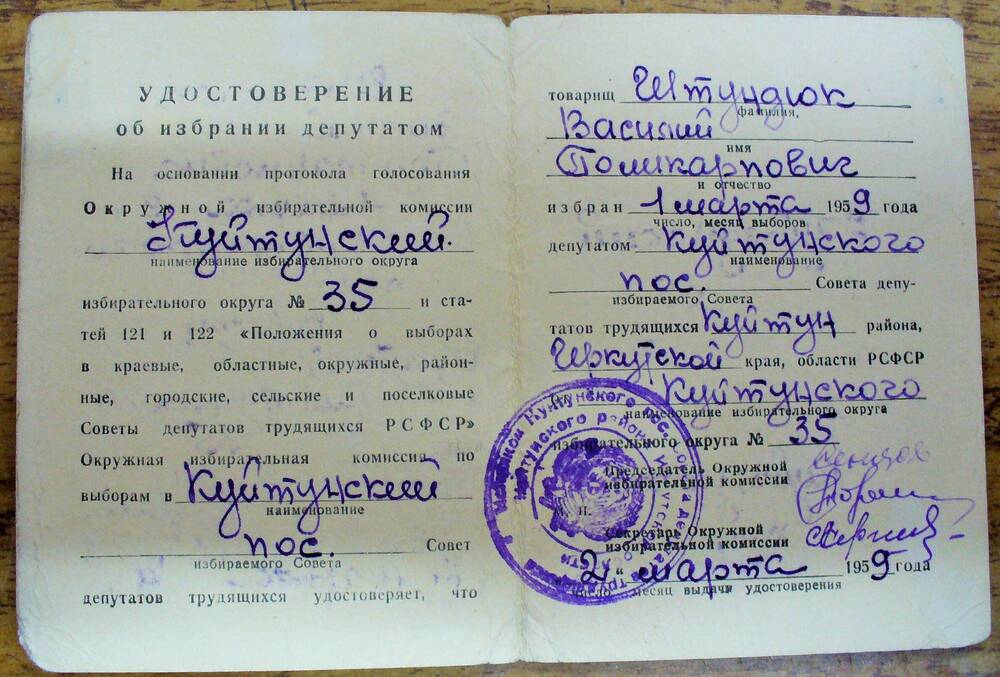 УДОСТОВЕРЕНИЕ
об избрании депутатом
На основании протокола голосования
Окружной избирательной комиссии
Куйтунский.
наименование избирательного округа
избирательного округа № 35 и ста-
тей 121 и 122 «Положения о выборах
в краевые, областные, окружные, район-
ные, городские, сельские и поселковые
Советы депутатов трудящихся РСФСР»
Окружная избирательная комиссия по
выборам в Куйтунский
наименование
пос. Совет
избираемого Совета
депутатов трудящихся удостоверяет, что
товарищ Штундюк
фамилия,
Василий
имя
Поликарпович
и отчество
избран 1 марта 1959 года
число, месяц выборов
депутатом Куйтунского
наименование
пос. Совета депу-
избираемого Совета
татов трудящихся Куйтун района,
Иркутской края, области РСФСР
от Куйтунского
наименование избирательного округа
избирательного округа № 35
Председатель Окружной
избирательной комиссии
М. П.
Секретарь Окружной
избирательной комиссии
"2" марта 1959 года
число, месяц выдачи удостоверения